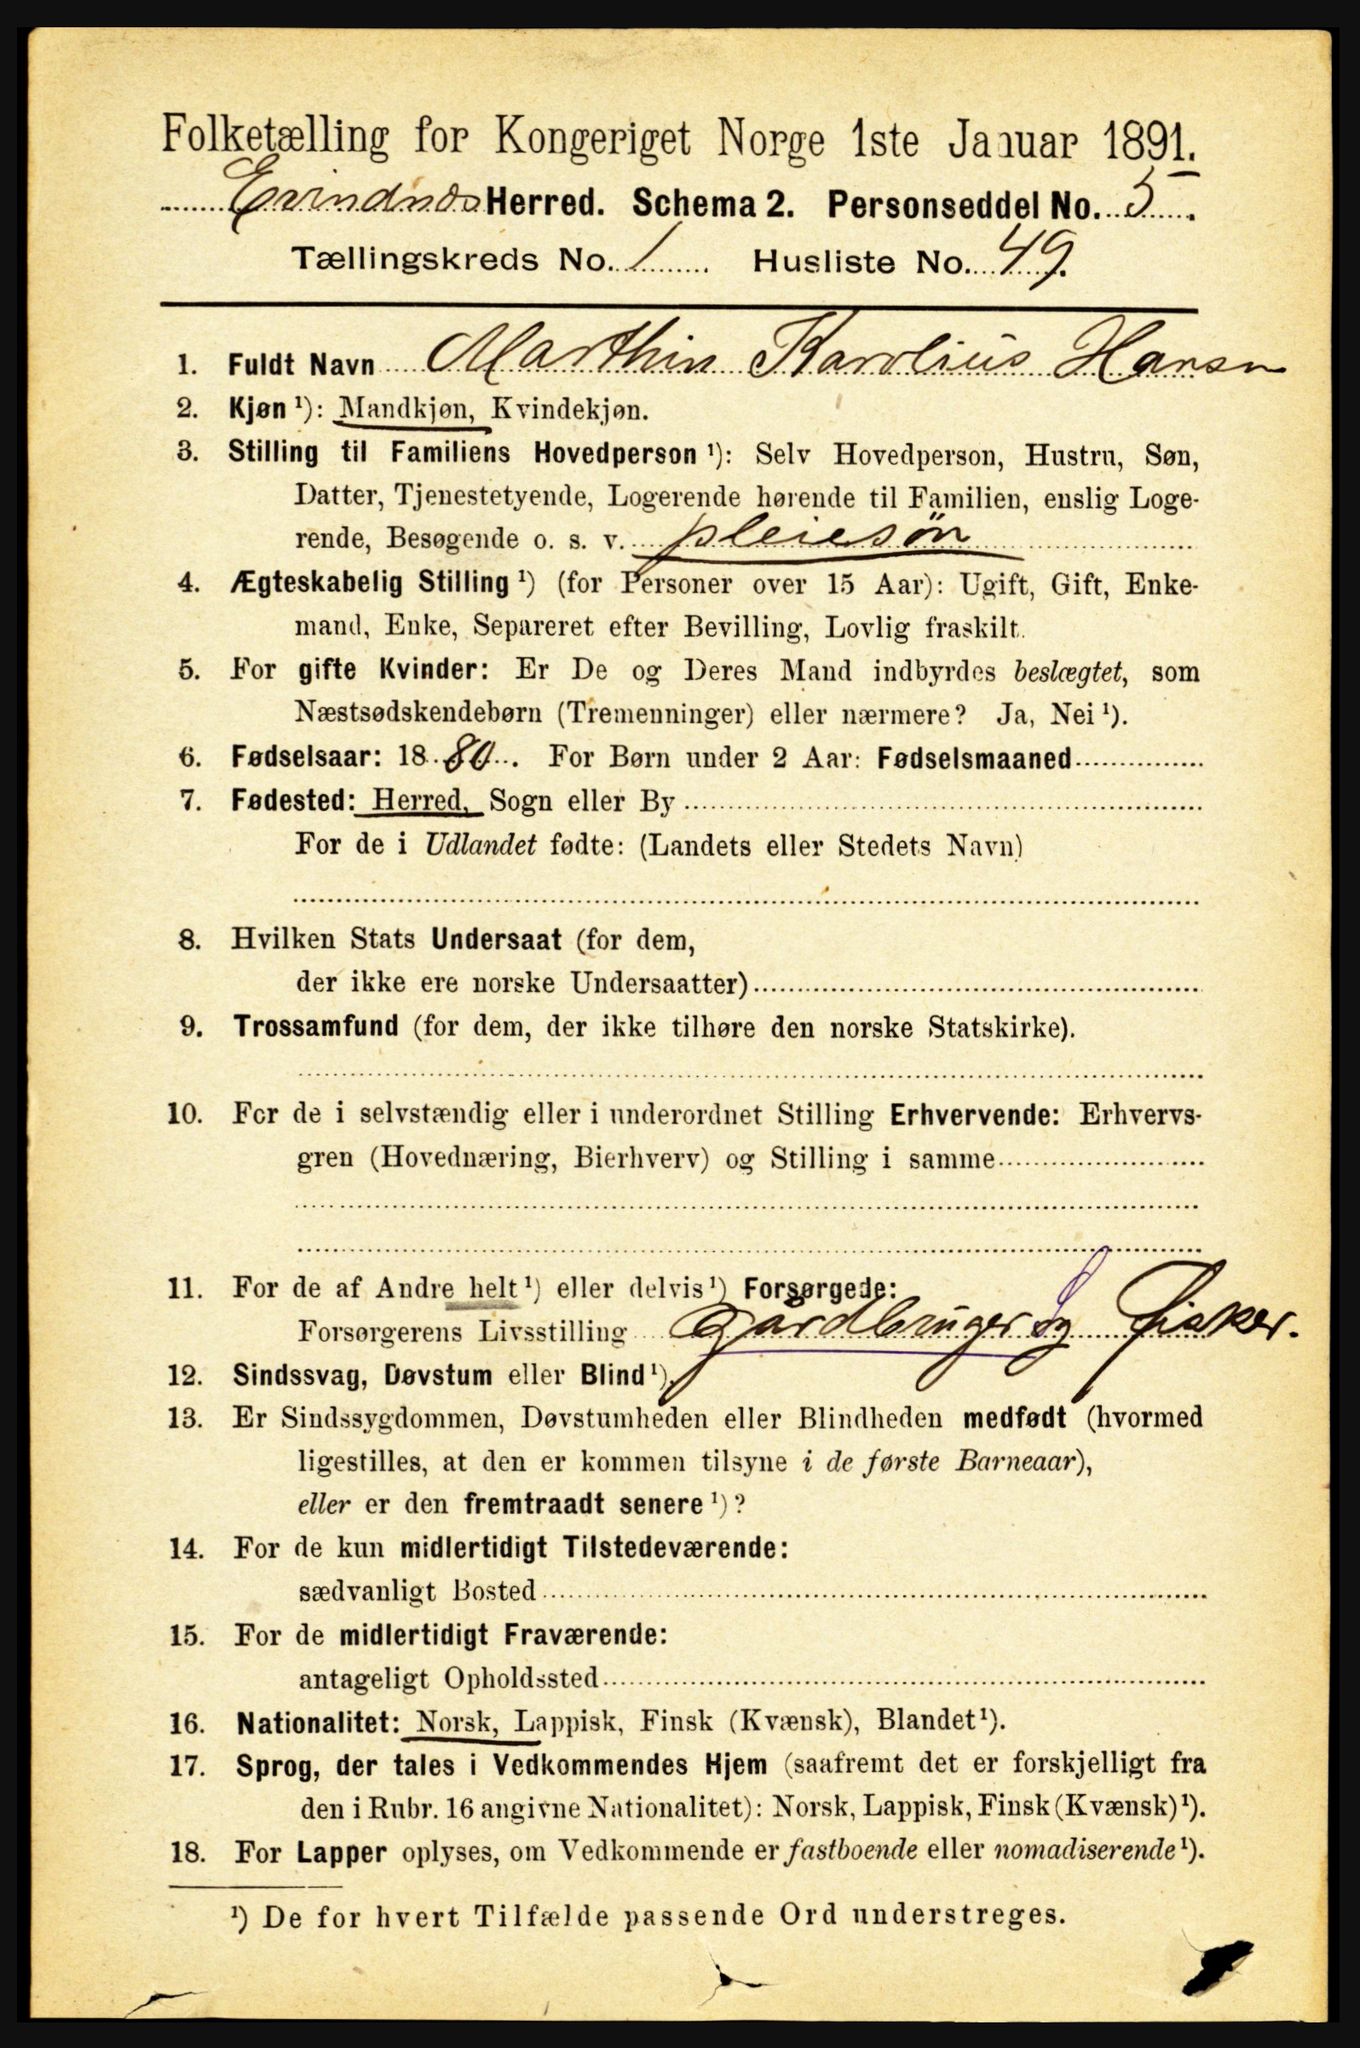 Folketælling for Kongeriget Norge 1ste Januar 1891.
Evindnæs Herred. Schema 2. Personseddel No. 5.
Tællingskreds No. 1 Husliste No. 49.
1. Fuldt Navn Marthin Karolius Hansn
2. Kjøn ¹): Mandkjøn, Kvindekjøn.
3. Stilling til Familiens Hovedperson ¹): Selv Hovedperson, Hustru, Søn,
Datter, Tjenestetyende, Logerende hørende til Familien, enslig Loge-
rende, Besøgende o. s. v. pleiesøn
4. Ægteskabelig Stilling ¹) (for Personer over 15 Aar): Ugift, Gift, Enke-
mand, Enke, Separeret efter Bevilling, Lovlig fraskilt.
5. For gifte Kvinder: Er De og Deres Mand indbyrdes beslægtet, som
Næstsødskendebørn (Tremenninger) eller nærmere? Ja, Nei ¹).
6. Fødselsaar: 1880. For Børn under 2 Aar: Fødselsmaaned
7. Fødested: Herred, Sogn eller By
For de i Udlandet fødte: (Landets eller Stedets Navn)
8. Hvilken Stats Undersaat (for dem,
der ikke ere norske Undersaatter)
9. Trossamfund (for dem, der ikke tilhøre den norske Statskirke).
10. For de i selvstændig eller i underordnet Stilling Erhvervende: Erhvervs-
gren (Hovednæring, Bierhverv) og Stilling i samme
11. For de af Andre helt ¹) eller delvis ¹) Forsørgede:
Forsørgerens Livsstilling gårdbruger og fisker.
12. Sindssvag, Døvstum eller Blind ¹).
13. Er Sindssygdommen, Døvstumheden eller Blindheden medfødt (hvormed
ligestilles, at den er kommen tilsyne i de første Barneaar),
eller er den fremtraadt senere ¹)?
14. For de kun midlertidigt Tilstedeværende:
sædvanligt Bosted
15. For de midlertidigt Fraværende:
antageligt Opholdssted
16. Nationalitet: Norsk, Lappisk, Finsk (Kvænsk), Blandet ¹).
17. Sprog, der tales i Vedkommendes Hjem (saafremt det er forskjelligt fra
den i Rubr. 16 angivne Nationalitet): Norsk, Lappisk, Finsk (Kvænsk) ¹).
18. For Lapper oplyses, om Vedkommende er fastboende eller nomadiserende ¹).
¹) De for hvert Tilfælde passende Ord understreges.